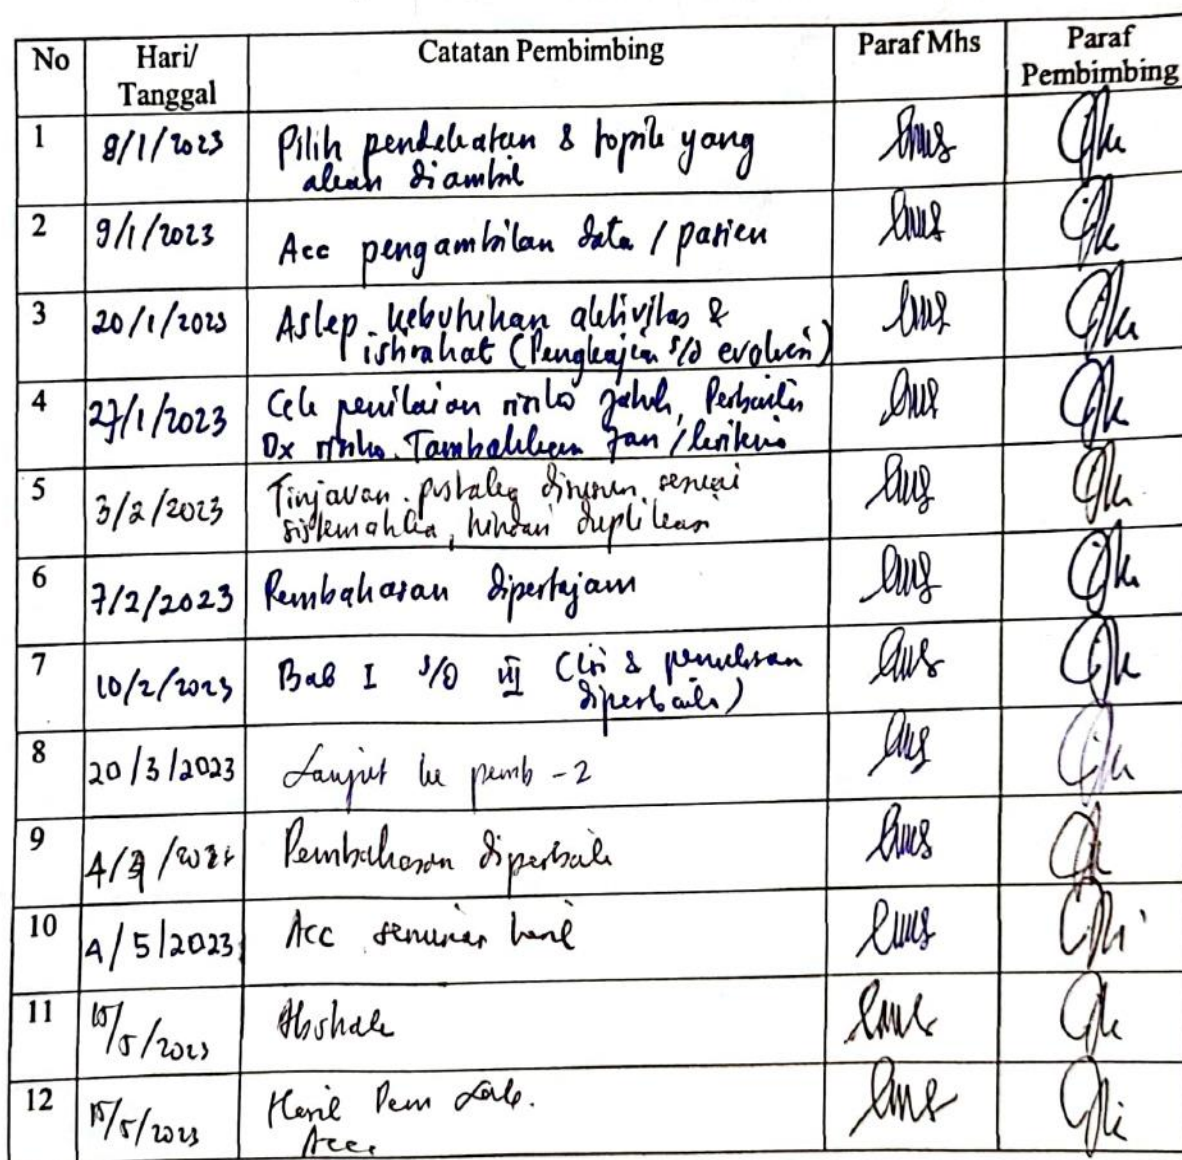 No Hari/ Catatan Pembimbing Paraf Mhs Paraf
Tanggal Pembimbing
1 8/1/2023 Pilih pendekatan & topik yang
akan diambil
2 9/1/2023 Acc pengambilan data / pasien
3 20/1/2023 Askep kebutuhan aktivitas &
istirahat (Pengkajian s/d evaluasi)
4 27/1/2023 Cek penilaian risiko jatuh, Perbaiki
Dx risiko. Tambahkan /kriteria
5 3/2/2023 Tinjauan pustaka disusun sesuai
sistematika, hindari duplikasi
6 7/2/2023 Pembahasan dipertajam
7 10/2/2023 Bab I s/d III (isi & penulisan
diperbaiki)
8 20/3/2023 Lanjut ke pemb-2
9 Pembahasan diperbaiki
10 4/5/2023 Acc seminar hasil
11 15/5/2023 Abstrak
12 15/5/2023 Hasil
Acc